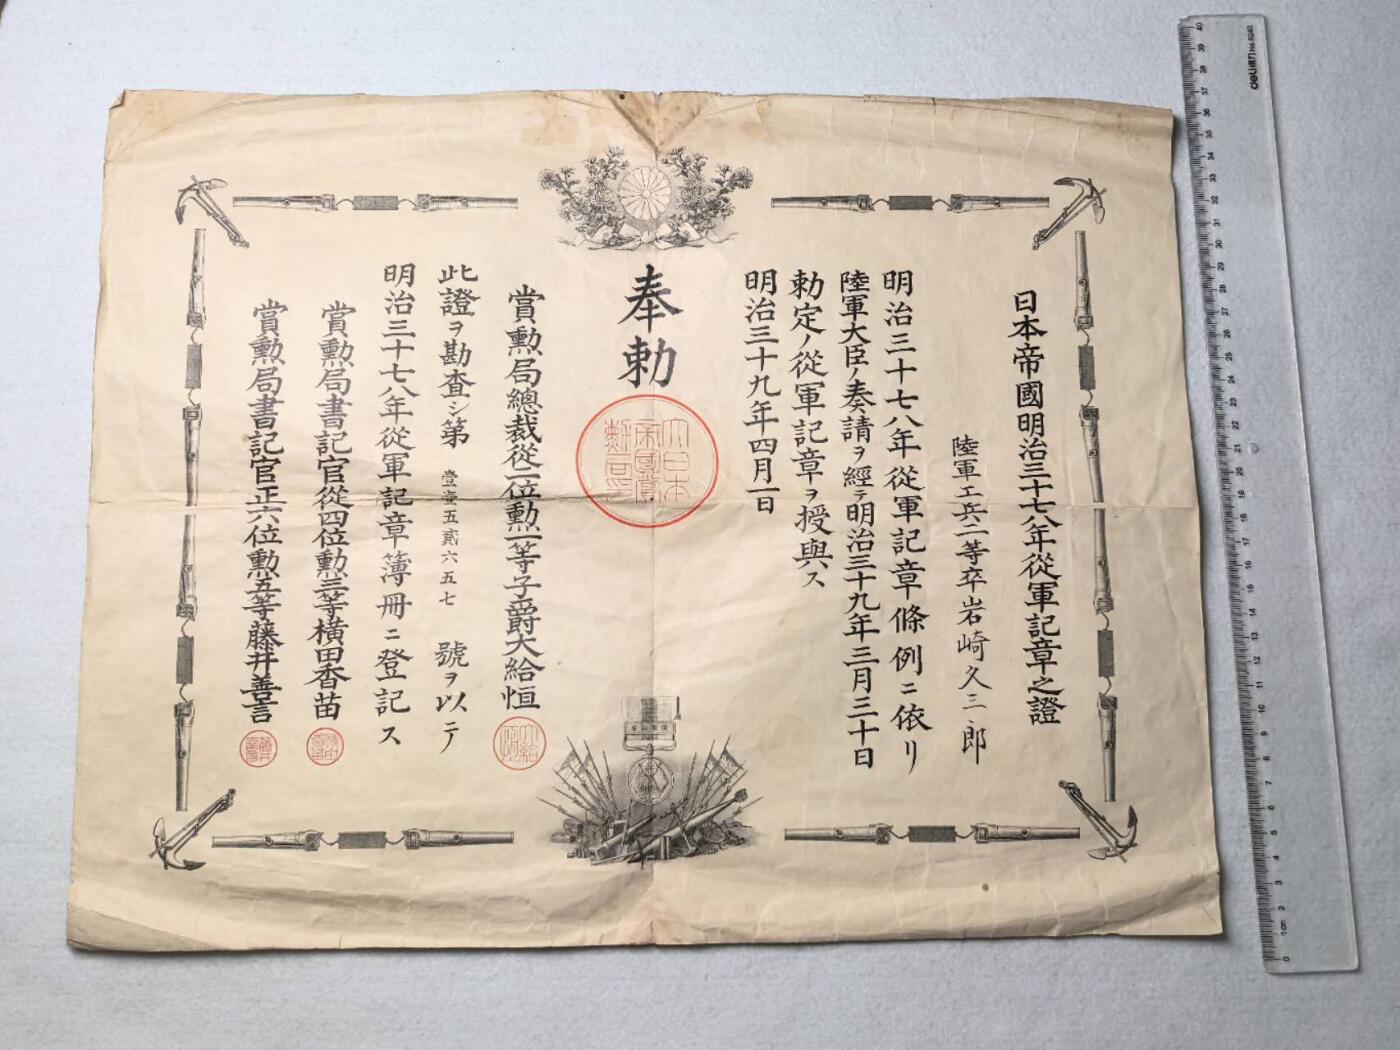 日本帝國明治三十七八年從軍記章之證
陸軍工兵二等卒岩崎久三郎
明治三十七八年從軍記章條例ニ依リ
陸軍大臣ノ奏請ヲ經テ明治三十九年三月三十日
勅定ノ從軍記章ヲ授與ス
明治三十九年四月一日
奉勅
大日本帝國賞勲局印
賞勲局總裁從二位勲一等子爵大給恒
此證ヲ勘査シ第壹壹五貳六五七號ヲ以テ
明治三十七八年從軍記章簿冊ニ登記ス
賞勲局書記官從四位勲三等横田香苗
賞勲局書記官正六位勲五等藤井善言
deli得力 No.6240